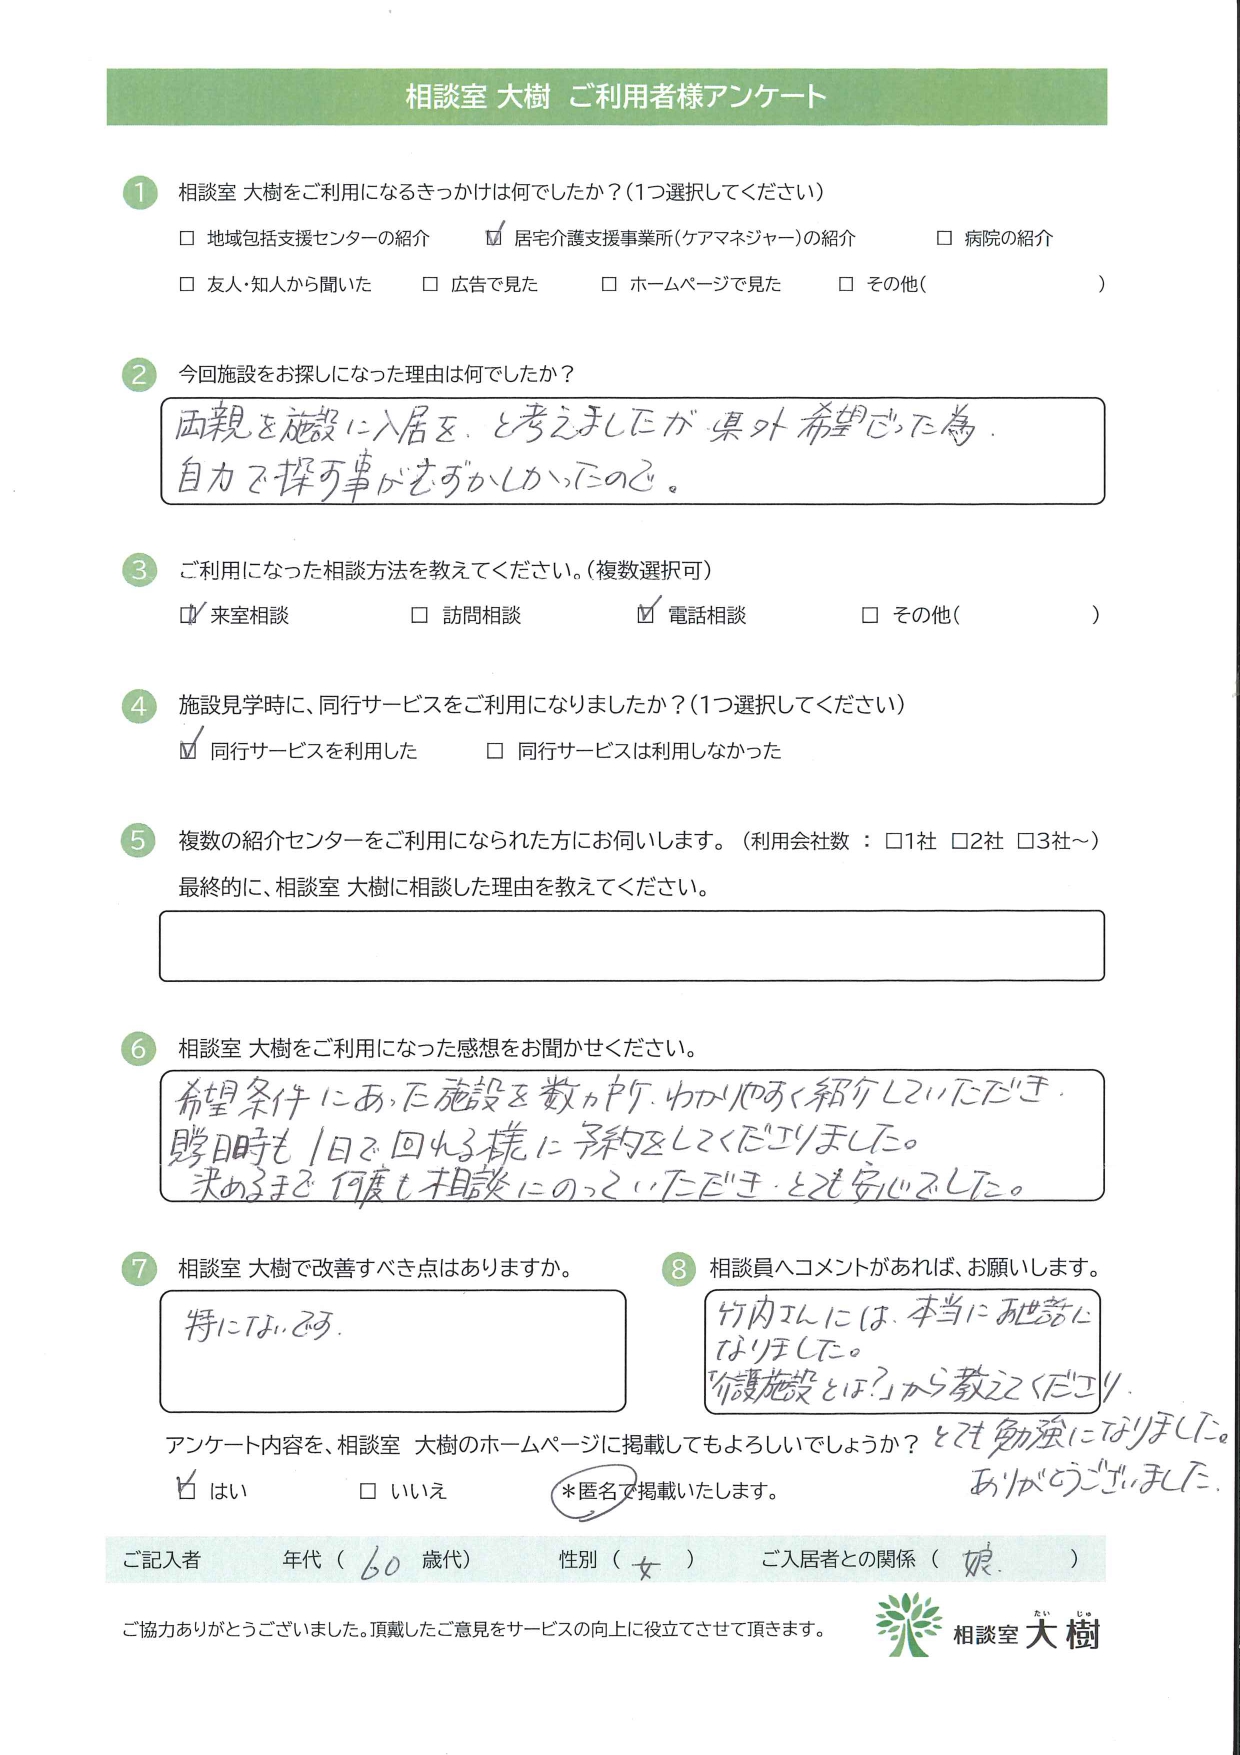 相談室 大樹 ご利用者様アンケート
1 相談室 大樹をご利用になるきっかけは何でしたか？(1つ選択してください)
□ 地域包括支援センターの紹介 ☑ 居宅介護支援事業所(ケアマネジャー)の紹介 □ 病院の紹介
□ 友人・知人から聞いた □ 広告で見た □ ホームページで見た □ その他( )
2 今回施設をお探しになった理由は何でしたか？
両親を施設に入居を、と考えましたが 県外 希望だった為、
自力で探す事がむずかしかったので。
3 ご利用になった相談方法を教えてください。(複数選択可)
☑ 来室相談 □ 訪問相談 ☑ 電話相談 □ その他( )
4 施設見学時に、同行サービスをご利用になりましたか？(1つ選択してください)
☑ 同行サービスを利用した □ 同行サービスは利用しなかった
5 複数の紹介センターをご利用になられた方にお伺いします。(利用会社数 : □1社 □2社 □3社～)
最終的に、相談室 大樹に相談した理由を教えてください。
6 相談室 大樹をご利用になった感想をお聞かせください。
希望条件にあった施設を数ヵ所、わかりやすく紹介していただき、
日時も1日で回れる様に予約をしてくださりました。
決めるまで何度も相談にのっていただき、とても安心でした。
7 相談室 大樹で改善すべき点はありますか。
特にないです。
8 相談員へコメントがあれば、お願いします。
竹内さんには、本当にお世話に
なりました。
「介護施設とは?」から教えてくださり、
とても勉強になりました。
ありがとうございました。
アンケート内容を、相談室 大樹のホームページに掲載してもよろしいでしょうか？
☑ はい □ いいえ ＊匿名で掲載いたします。
ご記入者 年代 ( 60 歳代) 性別 ( 女 ) ご入居者との関係 ( 娘 )
ご協力ありがとうございました。頂戴したご意見をサービスの向上に役立てさせて頂きます。
たい じゅ
相談室 大樹